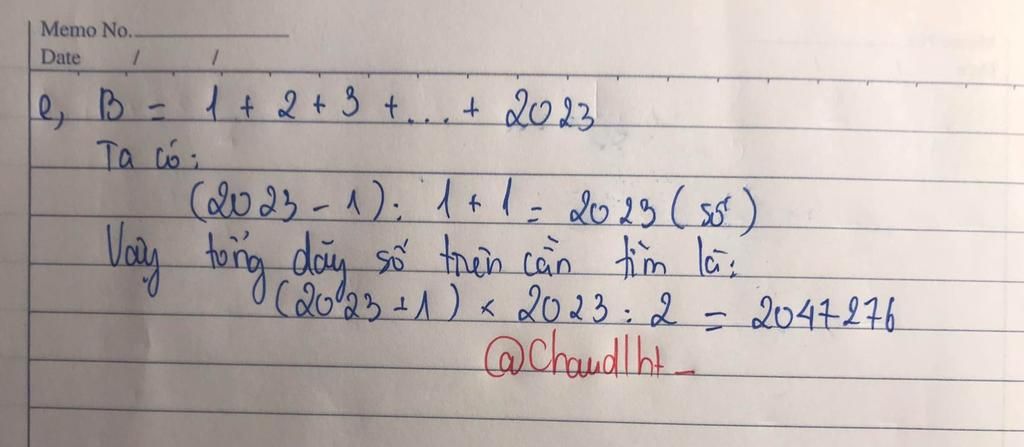 Memo No.
Date / /
e, B = 1 + 2 + 3 + ... + 2023
Ta có:
(2023 - 1) : 1 + 1 = 2023 (số)
Vậy tổng dãy số trên cần tìm là:
(2023 + 1) × 2023 : 2 = 2047276
@Chaudlht_